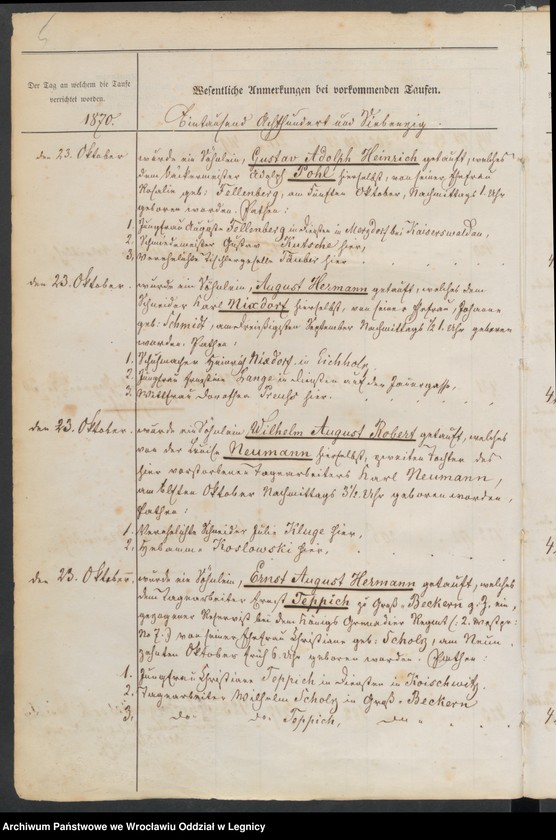 Der Tag an welchem die Taufe
verrichtet worden.
Wesentliche Anmerkungen bei vorkommenden Taufen.
1870.
Eintausend Achthundert und Siebenzig
den 23. Oktober
wurde ein Söhnlein, Gustav Adolph Heinrich getauft, welches
dem Bäckermeister Adolph Pohl hierselbst, von seiner Ehefrau
Rosalie, geb: Fellenberg, am fünften Oktober, Nachmittags 1 Uhr
geboren worden. Pathen:
1. Jungfrau Auguste Fellenberg in Diensten in Mersdorf bei Kaiserswaldau,
2. Schmiedemeister Gustav Kutsche hier,
3. Verehelichte Tischlergeselle Täuber hier
den 23. Oktober.
wurde ein Söhnlein, August Hermann getauft, welches dem
Schneider Karl Nixdorf hierselbst, von seiner Ehefrau, Johanne
geb: Schmidt, am dreißigsten September Nachmittags 1/2 1. Uhr geboren
worden. Pathen:
1. Schuhmacher Heinrich Nixdorf. in Eichholz,
2. Jungfrau Ernestine Lange in Diensten auf der Jauergasse,
3. Wittfrau Dorothea hier.
den 23. Oktober.
wurde ein Söhnlein Wilhelm August Robert getauft, welches
von der Louise Neumann hierselbst, zweiten Tochter des
hier verstorbenen Tagearbeiters Karl Neumann,
am Elften Oktober Nachmittags 3½ Uhr geboren worden.
Pathen:
1. Verehelichte Schneider Jul: Kluge hier,
2. Hebamme Koslowski hier,
den 23. Oktober.
wurde ein Söhnlein, Ernst August Hermann getauft, welches
dem Tagearbeiter Ernst Teppich zu Groß-Beckern z. Z. ein-
gezogener Reservist bei dem Königs Grenadier Regmt (2. Westpr:
No 7.) von seiner Ehefrau Christiane geb: Scholz, am Neun-
zehnten Oktober früh 6. Uhr geboren worden. Pathen:
1. Jungfrau Christiane Teppich in Diensten in Koischwitz.
2. Tagearbeiter Wilhelm Scholz in Groß-Beckern
3. do: do: Teppich, do
Archiwum Państwowe we Wrocławiu Oddział w Legnicy